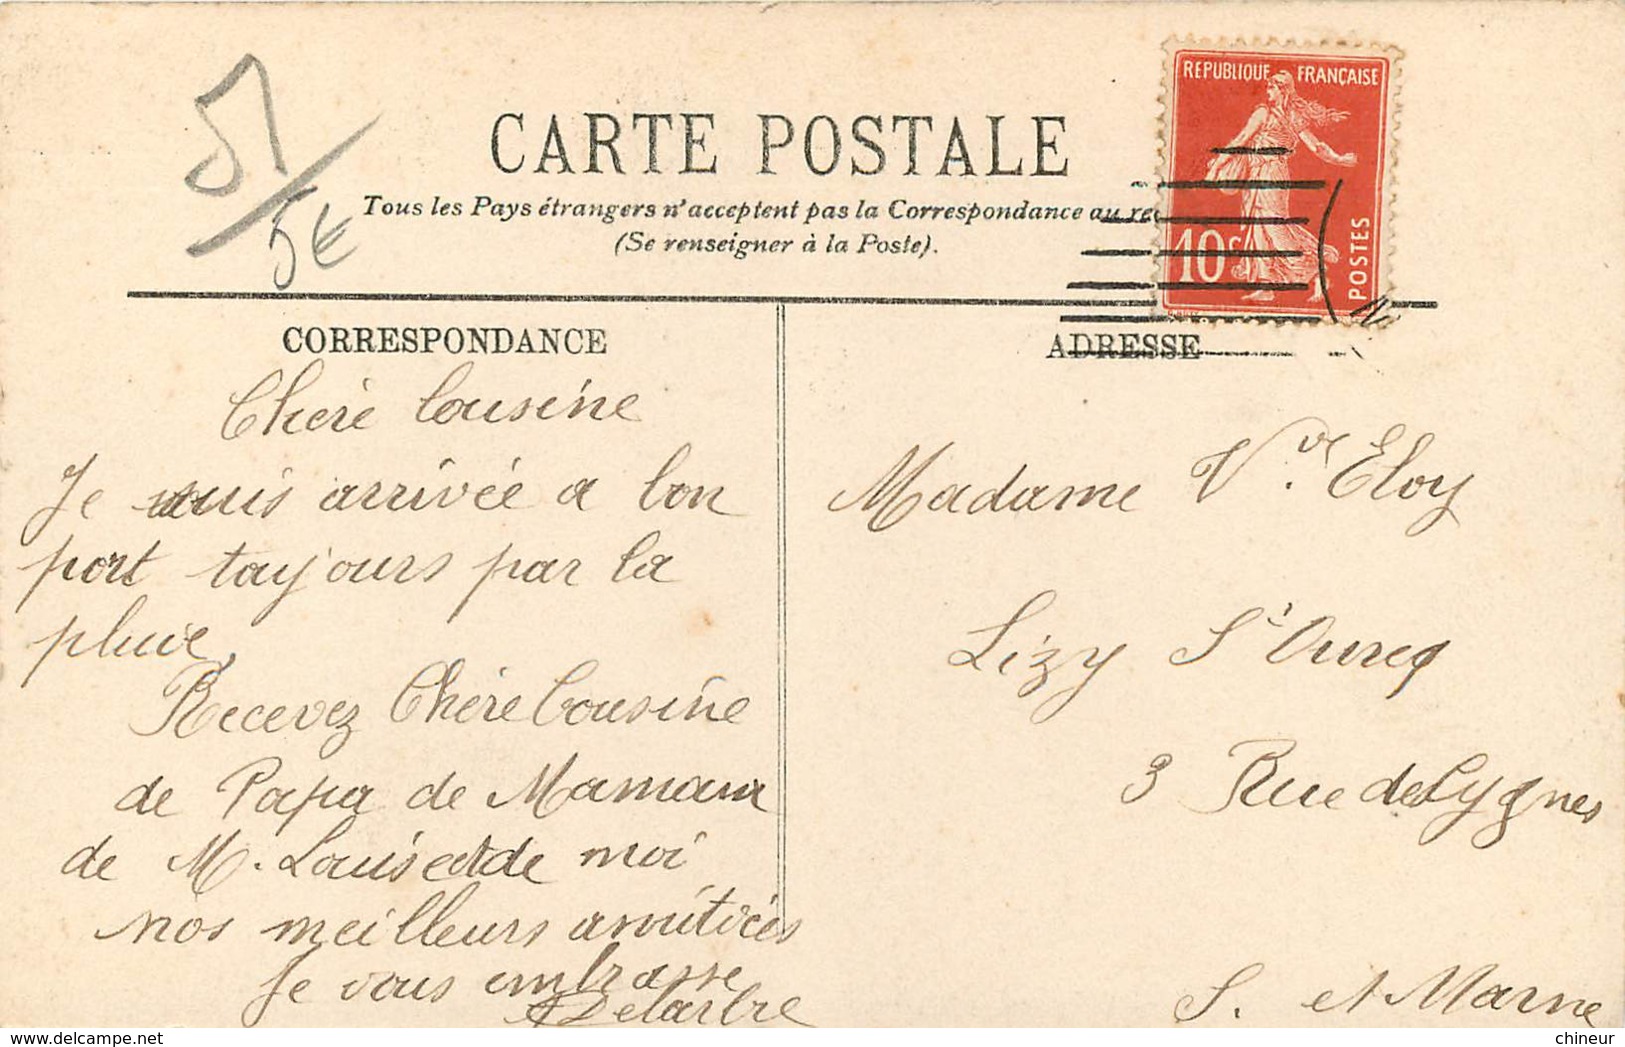 51
5€
CARTE POSTALE
Tous les Pays étrangers n'acceptent pas la Correspondance au re
(Se renseigner à la Poste).
REPUBLIQUE FRANÇAISE
10 c
POSTES
CORRESPONDANCE
Chère Cousine
Je suis arrivée a bon
port toujours par la
pluie,
Recevez Chère Cousine
de Papa de Maman
de M. Louis et de moi
nos meilleurs amitiées
Je vous embrasse
Delarbre
ADRESSE
Madame Vve. Eloy
Lizy S' Ourcq
3 Rue de Lygnes
S. et Marne
delcampe.net
chineur